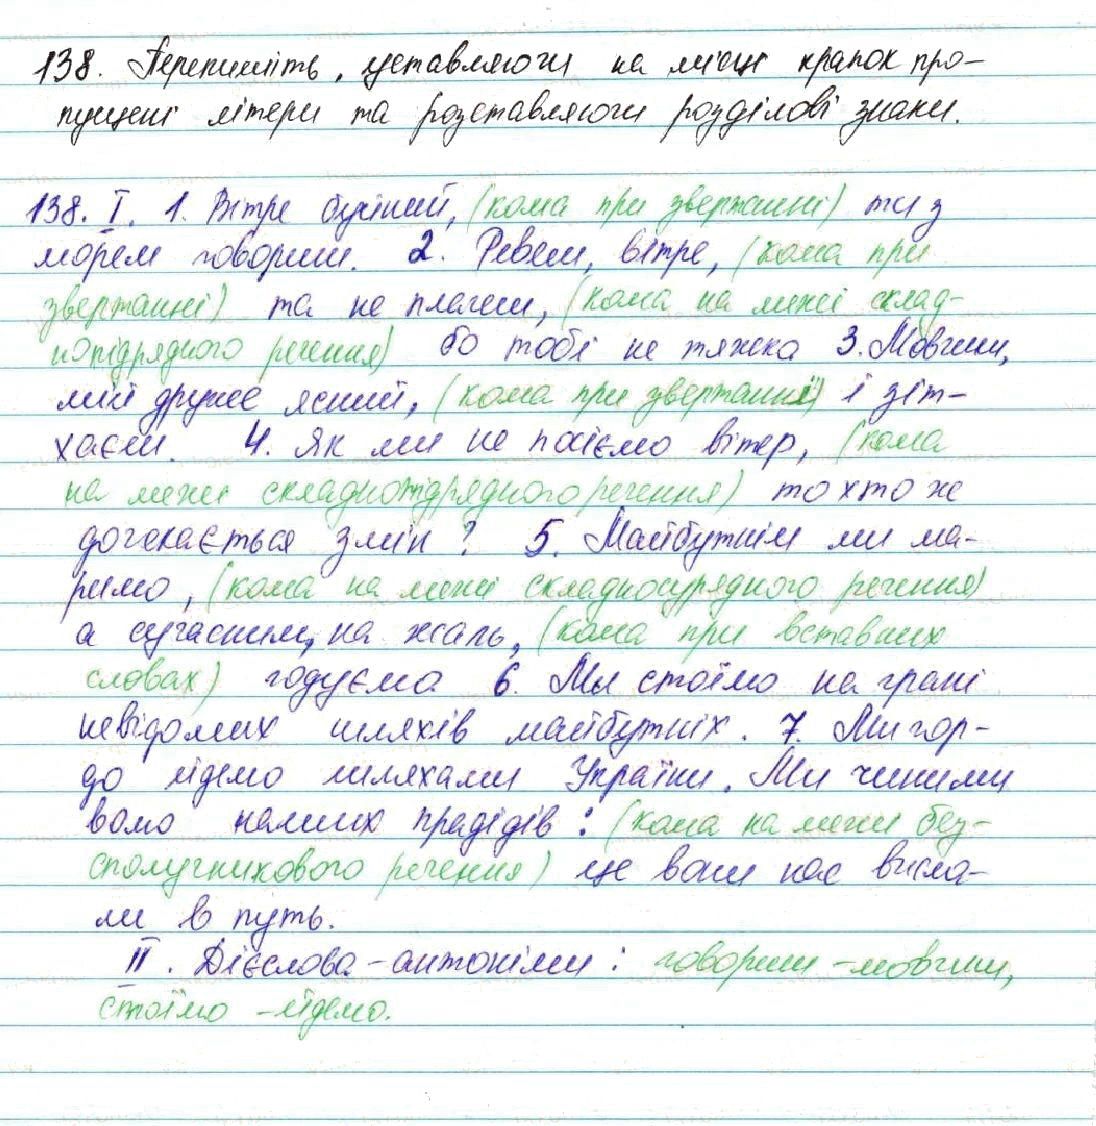 138. Перепишіть, уставляючи на місці крапок про-
пущені літери та розставляючи розділові знаки.
138. І. 1. Вітре буйний, (кома при звертанні) ти з
морем говориш. 2. Ревеш, вітре, (кома при
звертанні) та не плачеш, (кома на межі склад-
нопідрядного речення) бо тобі не тяжка 3. Мовчиш,
мій друже ясний, (кома при звертанні) і зіт-
хаєш. 4. Як ми не посіємо вітер, (кома
на межі складнопідрядного речення) то хто же
дочекається змін? 5. Майбутнім ми ма-
римо, (кома на межі складносурядного речення)
а сучасним, на жаль, (кома при вставних
словах) годуємо 6. Ми стоїмо на грані
невідомих шляхів майбутніх. 7. Ми гор-
до йдемо шляхами України. Ми чинимо
волю наших прадідів: (кома на межі без-
сполучникового речення) це вони нас висла-
ли в путь.
ІІ. Дієслова-антоніми: говориш - мовчиш,
стоїмо - йдемо.